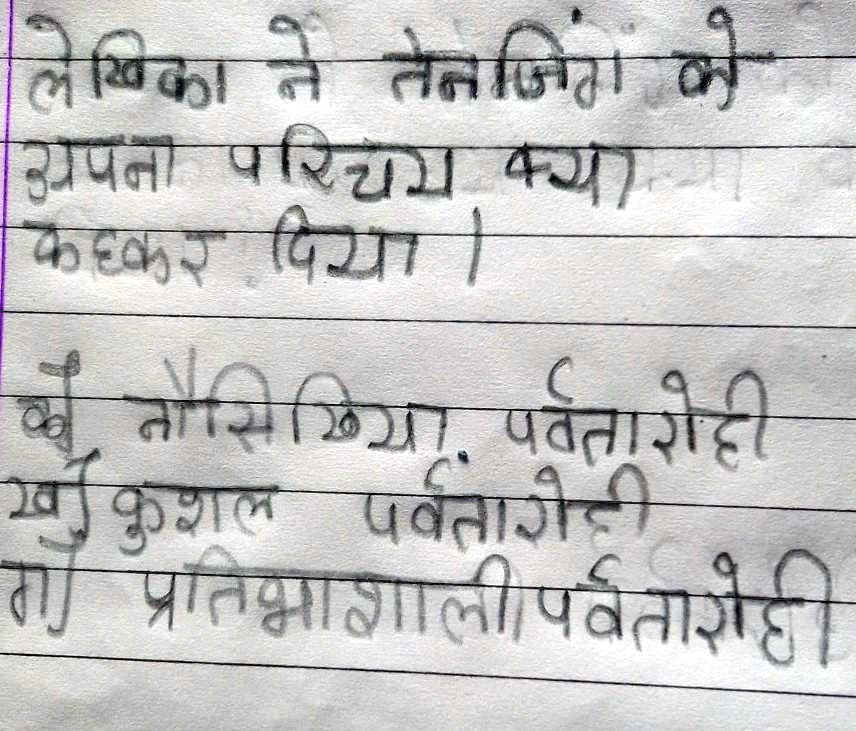 लेखिका ने तेनजिंग को
अपना परिचय क्या
कहकर दिया।
क) नौसिखिया पर्वतारोही
ख) कुशल पर्वतारोही
ग) प्रतिभाशाली पर्वतारोही